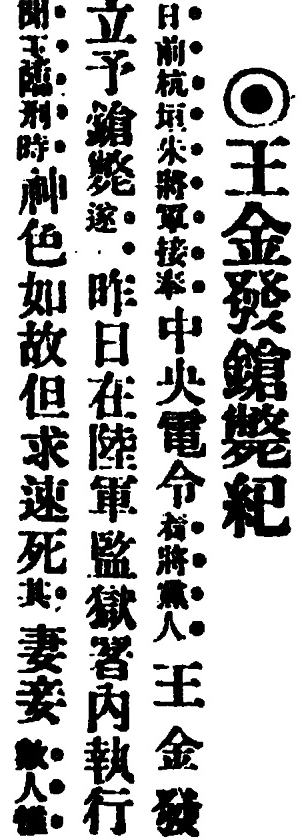 ◉王金發鎗斃紀
日前杭垣朱將軍接奉中央電令着將黨人王金發
立予鎗斃遂昨日在陸軍監獄署內執行
聞王臨刑時神色如故但求速死其妻妾數人